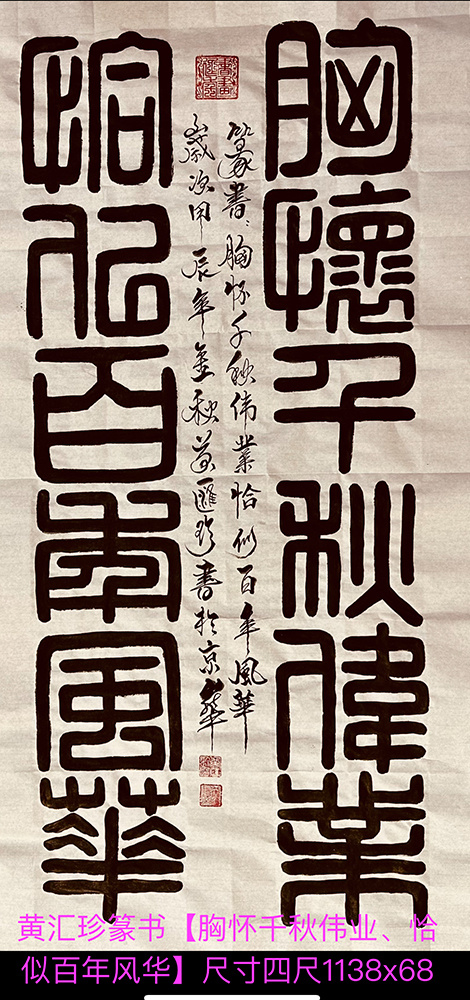 胸懷千秋偉業
恰似百年風華
篆書：胸怀千秋伟業恰似百年風華
歲次甲辰年金秋黄匯珍書於京華
黄汇珍篆书【胸怀千秋伟业、恰
似百年风华】尺寸四尺1138x68